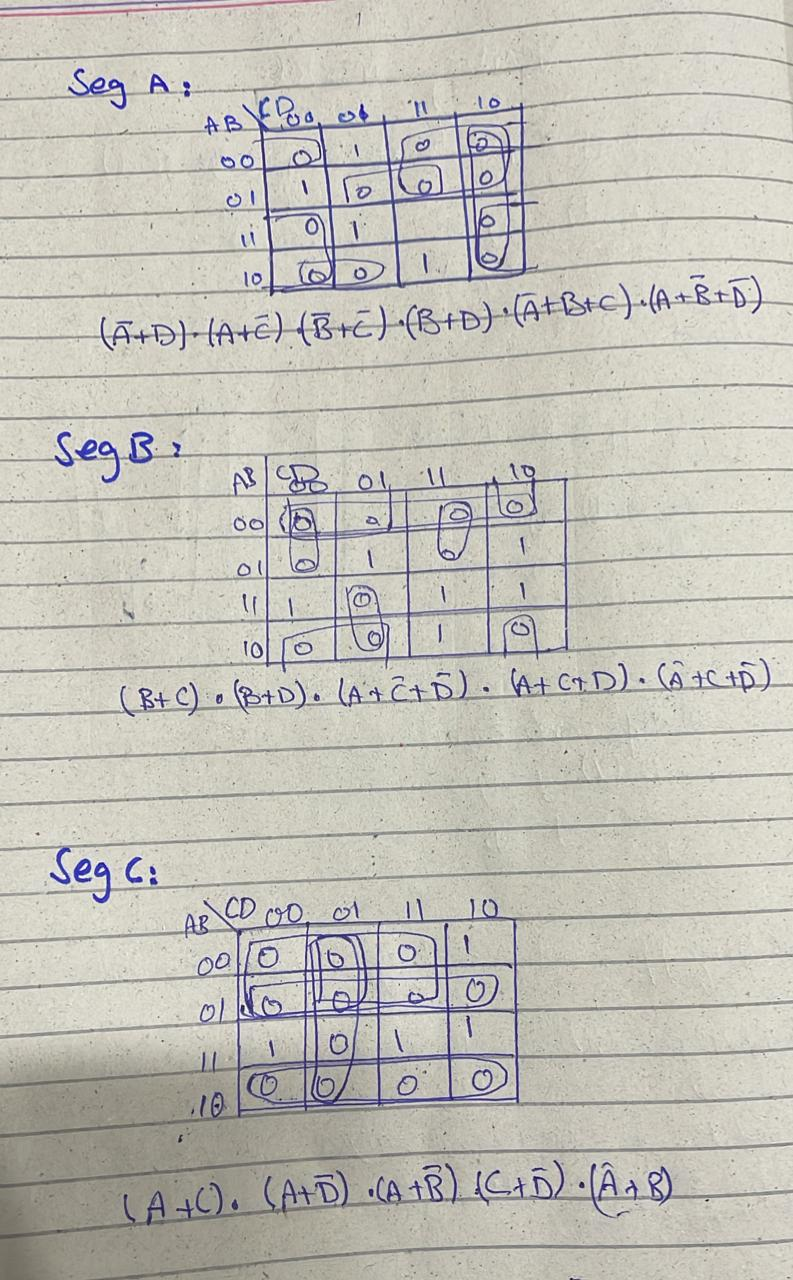 Seg A:
AB \ CD 00 01 11 10
00 0 1 0 0
01 1 0 0 0
11 0 1 0
10 0 0 1 0
(Ā+D)·(A+C̄)·(B̄+C̄)·(B+D)·(Ā+B+C)·(A+B̄+D̄)
Seg B:
AB CD 00 01 11 10
00 0 0 0 0
01 0 1 0 1
11 1 0 1 1
10 0 0 1 0
(B+C)·(B+D)·(A+C̄+D̄)·(A+C+D)·(Ā+C+D̄)
Seg C:
AB \ CD 00 01 11 10
00 0 0 0 1
01 0 0 0 0
11 1 0 1 1
10 0 0 0 0
(A+C)·(A+D̄)·(A+B̄)(C+D̄)·(Ā+B)